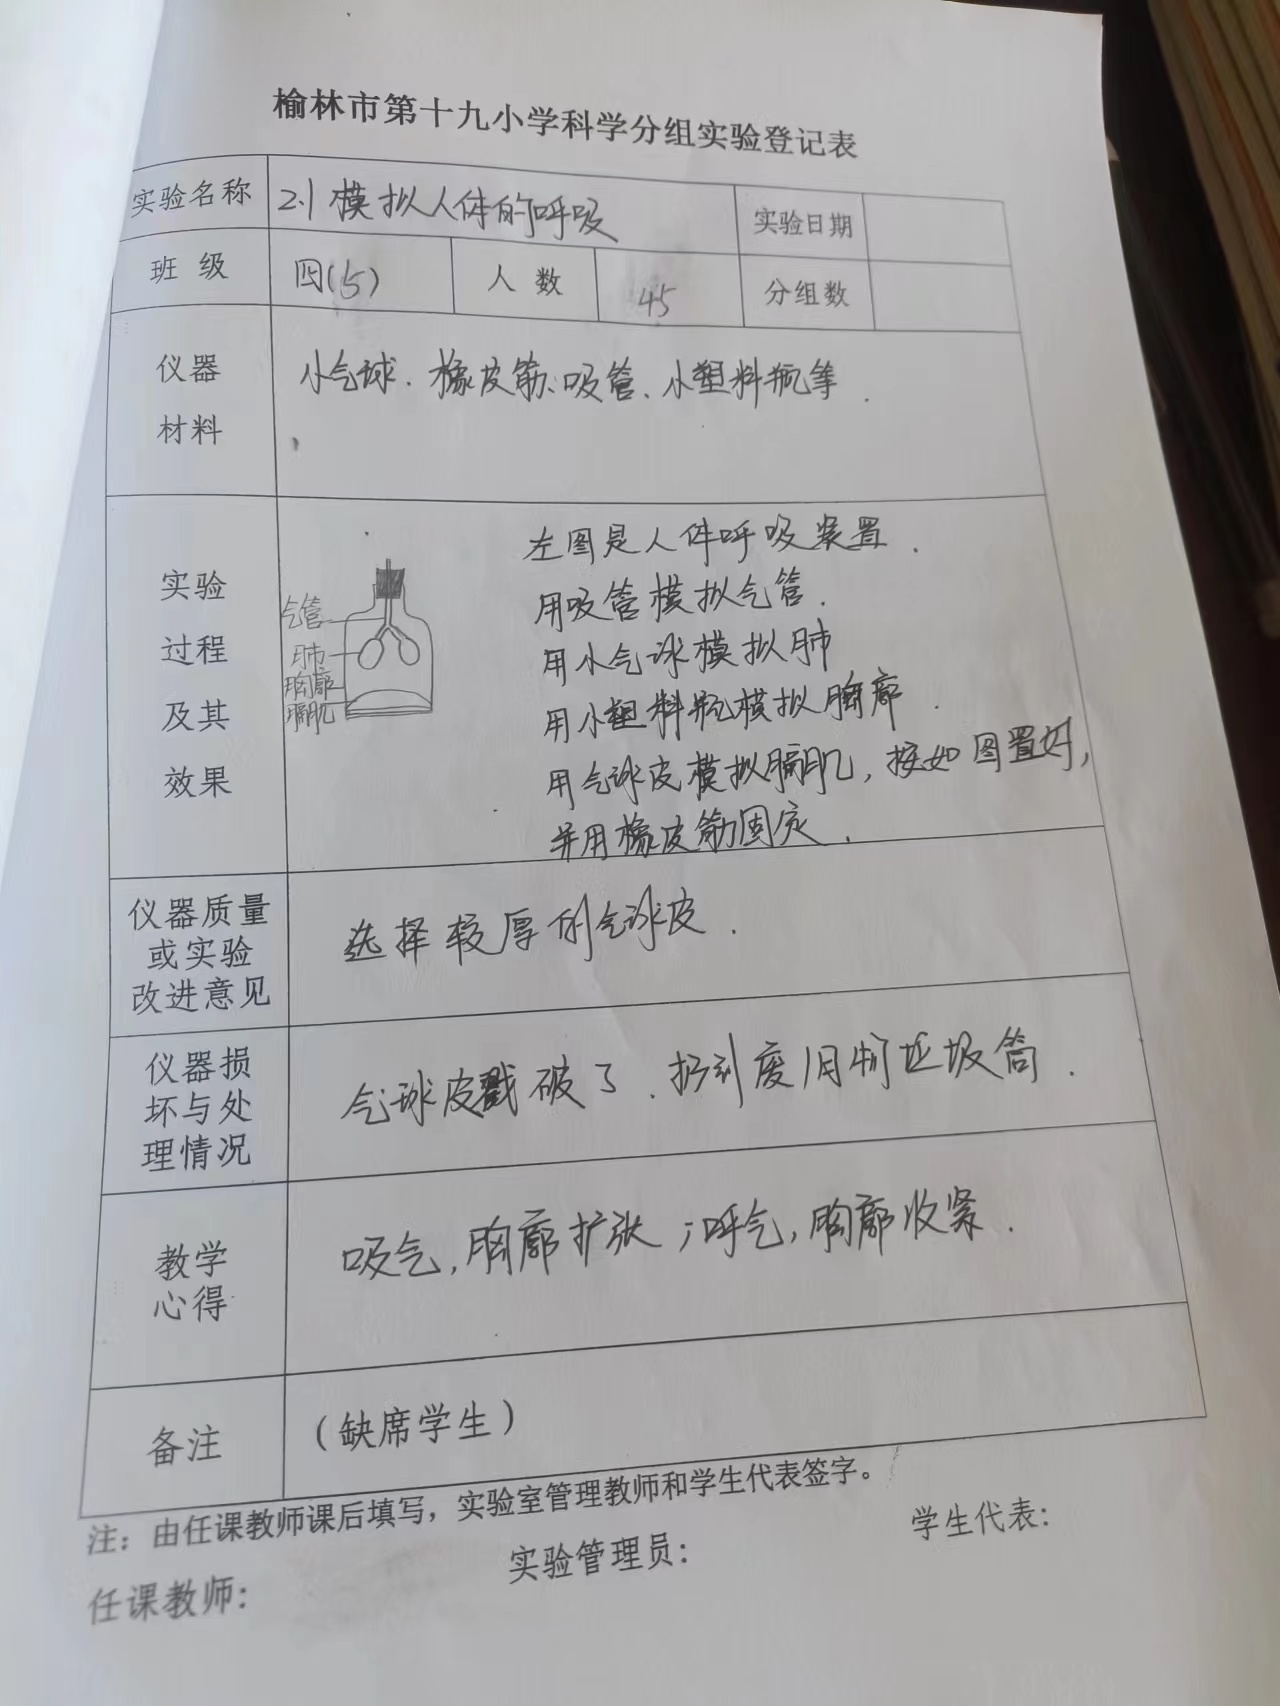 榆林市第十九小学科学分组实验登记表
实验名称 2.1 模拟人体的呼吸 实验日期
班 级 四(5) 人 数 45 分组数
仪器
材料
小气球、橡皮筋、吸管、小塑料瓶等.
实验
过程
及其
效果
气管
肺
胸廓
膈肌
左图是人体呼吸装置.
用吸管模拟气管.
用小气球模拟肺
用小塑料瓶模拟胸廓.
用气球皮模拟膈肌, 按如图置好,
并用橡皮筋固定.
仪器质量
或实验
改进意见
选择较厚的气球皮.
仪器损
坏与处
理情况
气球皮戳破了.扔到废旧物垃圾筒.
教学
心得
吸气,胸廓扩张;呼气,胸廓收紧.
备注 (缺席学生)
注: 由任课教师课后填写, 实验室管理教师和学生代表签字。
任课教师: 实验管理员: 学生代表: